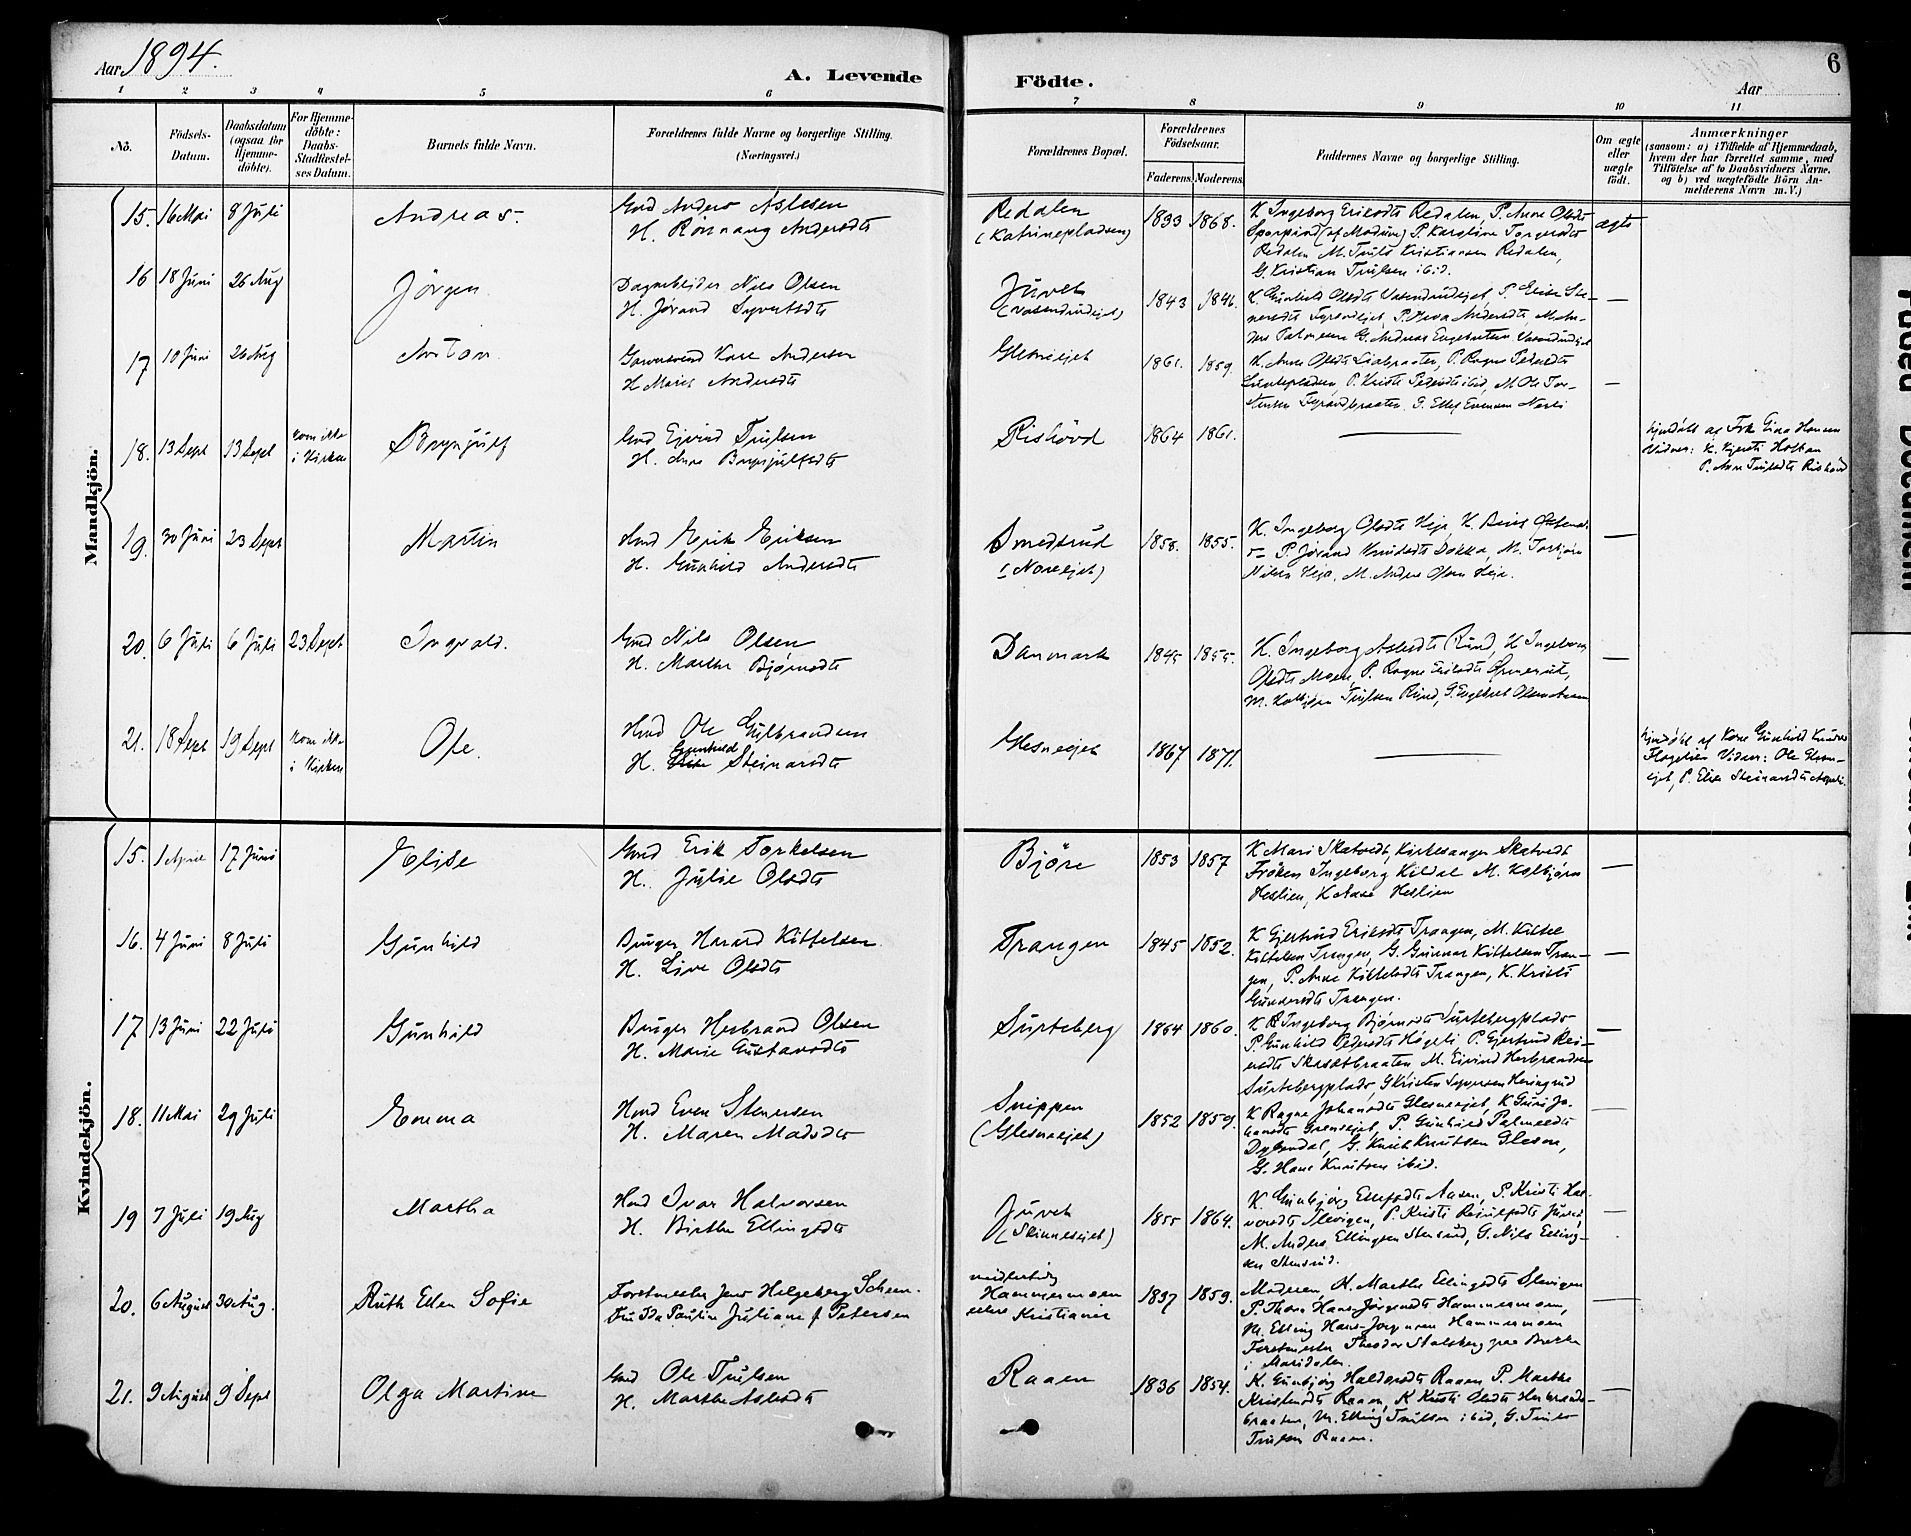 Aar 1894.
A. Levende
Födte.
Aar
6
1 2 3 4 5 6 7 8 9 10 11
Nô.
Födsels-Datum.
Daabsdatum (ogsaa för Hjemmedöbte).
For Hjemmedöbte: Daabs-Stadfæstelses Datum.
Barnets fulde Navn.
Forældrenes fulde Navne og borgerlige Stilling.
(Næringsvei.)
Forældrenes Bopæl.
Forældrenes Födselsaar.
Faderens.
Moderens.
Faddernes Navne og borgerlige Stilling.
Om ægte eller uægte födt.
Anmærkninger
(saasom: a) i Tilfælde af Hjemmedaab, hvem der har forrettet samme, med Tilföielse af to Daabsvidners Navne, og b) ved uægtefödte Börn Anmelderens Navn m. V.)
Mandkjön.
15. 16 Mai 8 Juli Andreas. Gmd Anders Aslesen
H. Rönnaug Andersdtr
Redalen
(Katrinepladsen)
1833 1868. K. Ingeborg Eriksdtr Redalen, P. Anne Olsdtr
(af Modum) P. Karoline Torgersdtr
Redalen M. Truls Kristiansen Redalen,
G. Kristian Trulsen ibid.
ægte
16 18 Juni 26 Aug Jörgen. Dagarbeider Nils Olsen
H. Jörand Syvertsdtr
Juvet
1843 1846.
—
17 10 Juni 26 Aug Anton Andersen
H. Maria Andersdtr
Glesneejet
1861. 1859. K. Anne Olsdtr P. Ragne Pedersdtr
P. Kristi Pedersdtr ibid, M. Ole Tor-
—
18. 13 Sept 13 Sept Kom ikke
i Kirken
Brynjulf Gmd Ejvind Trulsen
H. Anne Brynjulfsdtr
Rishövd 1864 1861.
hjemdöbt af Frk Gina Hansen
Vidner: K. Kjersti Holtan
P. Anne Trulsdtr Rishövd
19. 30 Juni 23 Sept Martin Hmd Erik Eriksen
H. Gunhild Andersdtr
Smedsrud
(Noreejet)
1858. 1855. K. Ingeborg Olsdtr Heje, K. Berit
P. Jörand Knudsdtr Dokka, M. Torbjörn
Nilsen Heje, M. Anders Olsen Heje.
—
20. 6 Juli 6 Juli 23 Sept Ingvald. Gmd Nils Olsen
H. Marthe Bjørnsdtr
Danmark 1845 1855. K. Ingeborg Aslesdtr Rund, K Ingeborg
Olsdtr Moen, P. Ragne Eriksdtr
M. Kolbjørn Trulsen Rund, G. Engebret Olsen
—
21. 18 Sept 19 Sept Kom ikke
i Kirken
Ole. Hmd Ole Gulbrandsen
H. Gunhild Steinarsdtr
Glesneejet 1867 1871.
hjemdöbt af Kone Gunhild
Vidner: Ole
P. Elise Steinarsdtr
Kvindekjön.
15. 1 April 17 Juni Elise Gmd Erik Torkelsen
H. Julie Olsdtr
Björe 1853 1857 K Mari Skatvedt, Kirkesanger Skatvedt
Fröken Ingeborg Kildal M. Kolbjørn
Heslien, K Aase Heslien
—
16. 4 Juni 8 Juli Gunhild Bruger Harald Kittelsen
H. Live Olsdtr
Trangen 1845 1852. K Gjertrud Eriksdtr Trangen, M. Kittel
Kittelsen Trangen, G. Gunnar Kittelsen Tran-
gen, P. Anne Kittelsdtr Trangen, K. Kristi
Gundersdtr Trangen.
—
17 13 Juni 22 Juli Gunhild Bruger Herbrand Olsen
H. Marie Gustavsdtr
Surteberg 1864 1860. K Ingeborg Bjørnsdtr Surtebergplads
P. Gunhild Pedersdtr Høgeli P. Gjertrud Rei-
ersdtr M. Eivind Herbrandsen
Surtebergplads, G Kristen Syversen Heringrud
—
18. 11 Mai 29 Juli Emma Hmd Even Stenersen
H. Maren Madsdtr
Snippen
(Glesneejet)
1852 1859. K Ragne Johansdtr Glesneejet, K Guri Jo-
hansdtr P Gunhild Palmesdtr
G. Knut Knutsen Glesne,
G. Hans Knutsen ibid.
—
19 7 Juli 19 Aug Martha Hmd Ivar Halvorsen
H. Birthe Ellingsdtr
Juvet
(Skinnesejet)
1855 1864. K. Gunbjörg Ellefsdtr Aasen, P. Kristi Hal-
vorsdtr Slevigen, P. Kristi
M. Anders Ellingsen Stensrud, G. Nils Elling-
sen Stensrud.
—
20. 6 August 30 Aug. Ruth Ellen Sofie Forstmester Jens Helgeberg Scheen
Fru Ida Pauline Juliane f. Petersen
midlertidig
Hammersmoen
ellers Kristiania
1837 1859. Moderen, H. Marthe Ellingsdtr Slevigen
P. Thora Hans-Jørgensdtr Hammersmoen,
M. Elling Hans-Jorgensen Hammersmoen
Forstmester Theodor Stalsberg paa
i Maridalen.
—
21. 9 August 9 Sept Olga Martine Gmd Ole Trulsen
H. Marthe Aslesdtr
Raaen 1836 1854. K. Gunbjörg Haldorsdtr Raaen P. Marthe
Kristensdtr Raaen, K Kristi Olsdtr Herbrands-
braaten, M. Elling Trulsen ibid, G. Truls
Trulsen Raaen.
—